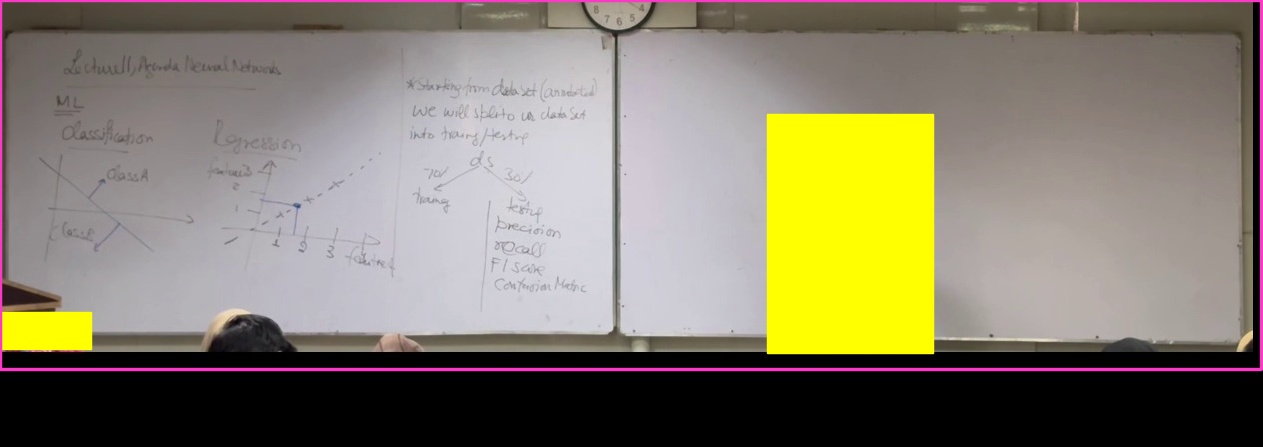 Lecture11, Agenda Neural Networks
ML
Classification
Class A
Regression
2
1
1 2 3
* Starting from data set (annotated)
we will split our data set
into traing/testing
ds
70% 30%
training
testing
precision
recall
F1 score
Confusion Matric
8 7 6 5 4